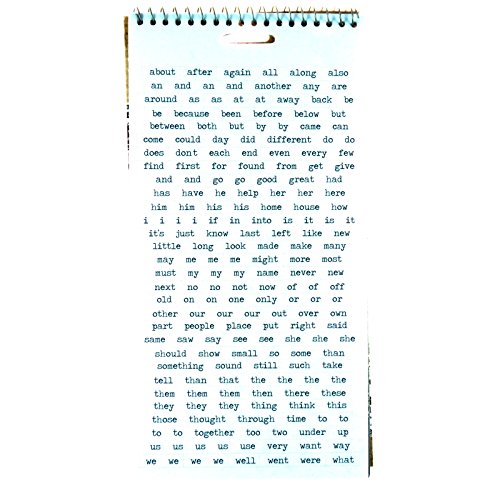 about after again all along also
an and an and another any are
around as as at at away back be
be because been before below but
between both but by by came can
come could day did different do do
does dont each end even every few
find first for found from get give
and and go go good great had
has have he help her her here
him him his his home house how
i i i i if in into is it is it
it's just know last left like new
little long look made make many
may me me me might more most
must my my my name never new
next no no not now of of off
old on on one only or or or
other our our our out over own
part people place put right said
same saw say see see she she she
should show small so some than
something sound still such take
tell than that the the the the
them them them then there these
they they they thing think this
those thought through time to to
to to together too two under up
us us us us use very want way
we we we we well went were what